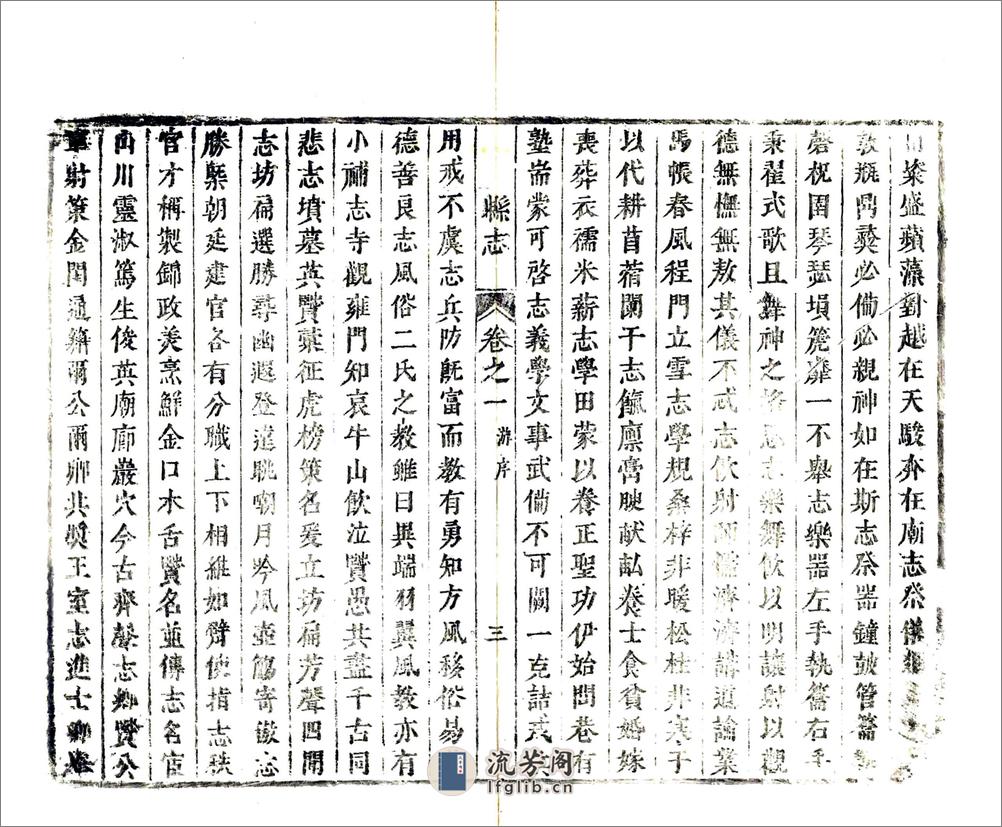 粢盛蘋藻對越在天駿奔在廟志祭儀
敦瓶鼎爨必備必親神如在斯志祭器鐘皷管籥
磬柷圉琴瑟塤箎靡一不舉志樂器左手執籥右手
秉翟式歌且舞神之格思志樂舞飲以明讓射以觀
德無憮無敖其儀不忒志飲射濟濟講道論業
馬帳春風程門立雪志學規桑梓非暖松杜非寒子
以代耕苜蓿闌干志餼廪膏腴献畆養士食貧婚嫁
喪葬衣襦米薪志學田蒙以養正聖功伊始閭巷有
塾耑蒙可啓志義學文事武備不可闕一克詰戎
縣志 卷之一 游序 三
用戒不虞志兵防旣富而教有勇知方風移俗易
德善良志風俗二氏之教雖曰異端羽翼風教亦有
小補志寺觀雍門知哀牛山飲泣賢愚共盡千古同
悲志墳墓英賢彙征虎榜策名爰立坊扁芳聲四聞
志坊扁選勝尋幽遐登遠眺嘲月吟風壺觴寄傲志
勝槩朝廷建官各有分職上下相維如臂使指志秩
官才稱製錦政美烹鮮金口木舌賢名並傳志名宦
山川靈淑篤生俊英廟廊巖穴今古齊聲志鄉賢公
車射策金閨通籍爾公爾卿共奬王室志進士
流芳阁
lfglib.cn